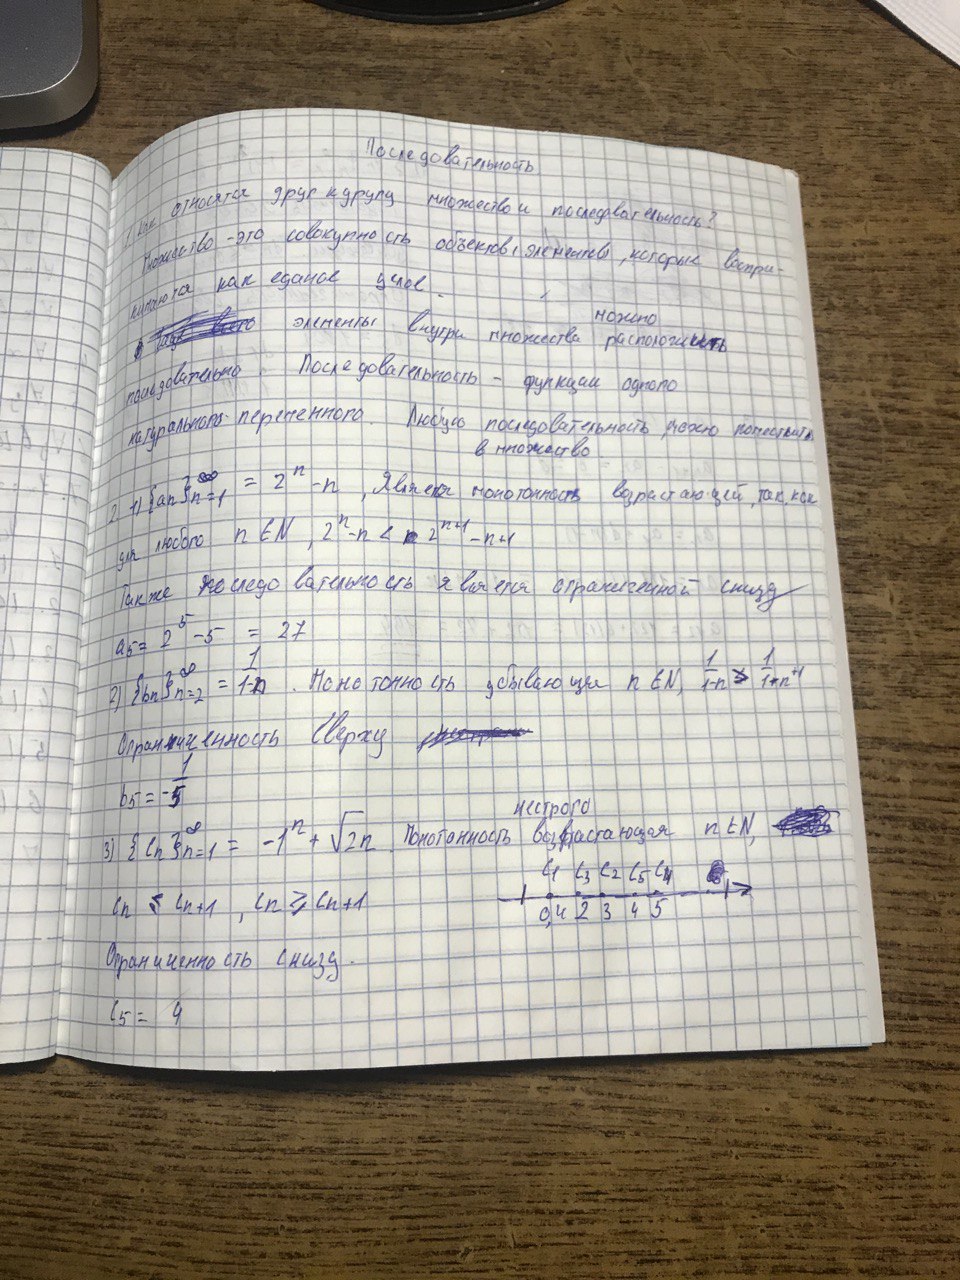 Последовательность
1. Как относятся друг к другу множество и последвательность?
Множество - это совокупность объектов, элементов, которые воспри-
нимаются как еданое целое.
можно
элементы внутри множества расположить
последовательно. Последовательность - функции одного
натурального переменного. Любую последовательность можно поместить
в множество
2. 1) {an}∞n=1 = 2^n - n, Является монотонность возрастающей, так, как
для любого n ∈ N, 2^n - n < 2^n+1 - n+1
Также последовательность является ограниченной снизу
a5 = 2^5 - 5 = 27
2) {bn}∞n=2 = 1/1-n. Монотонность убывающие n ∈ N, 1/1-n > 1/1-n+1
Ограниченность сверху
b5 = -1/5
нестрого
3) {Cn}∞n=1 = -1^n + √2n Монотонность возрастающая n ∈ N,
C1 C3 C2 C5 C4
Cn ≤ Cn+1, Cn ≥ Cn+1
0,4 2 3 4 5
Ограниченность снизу.
C5 = 4